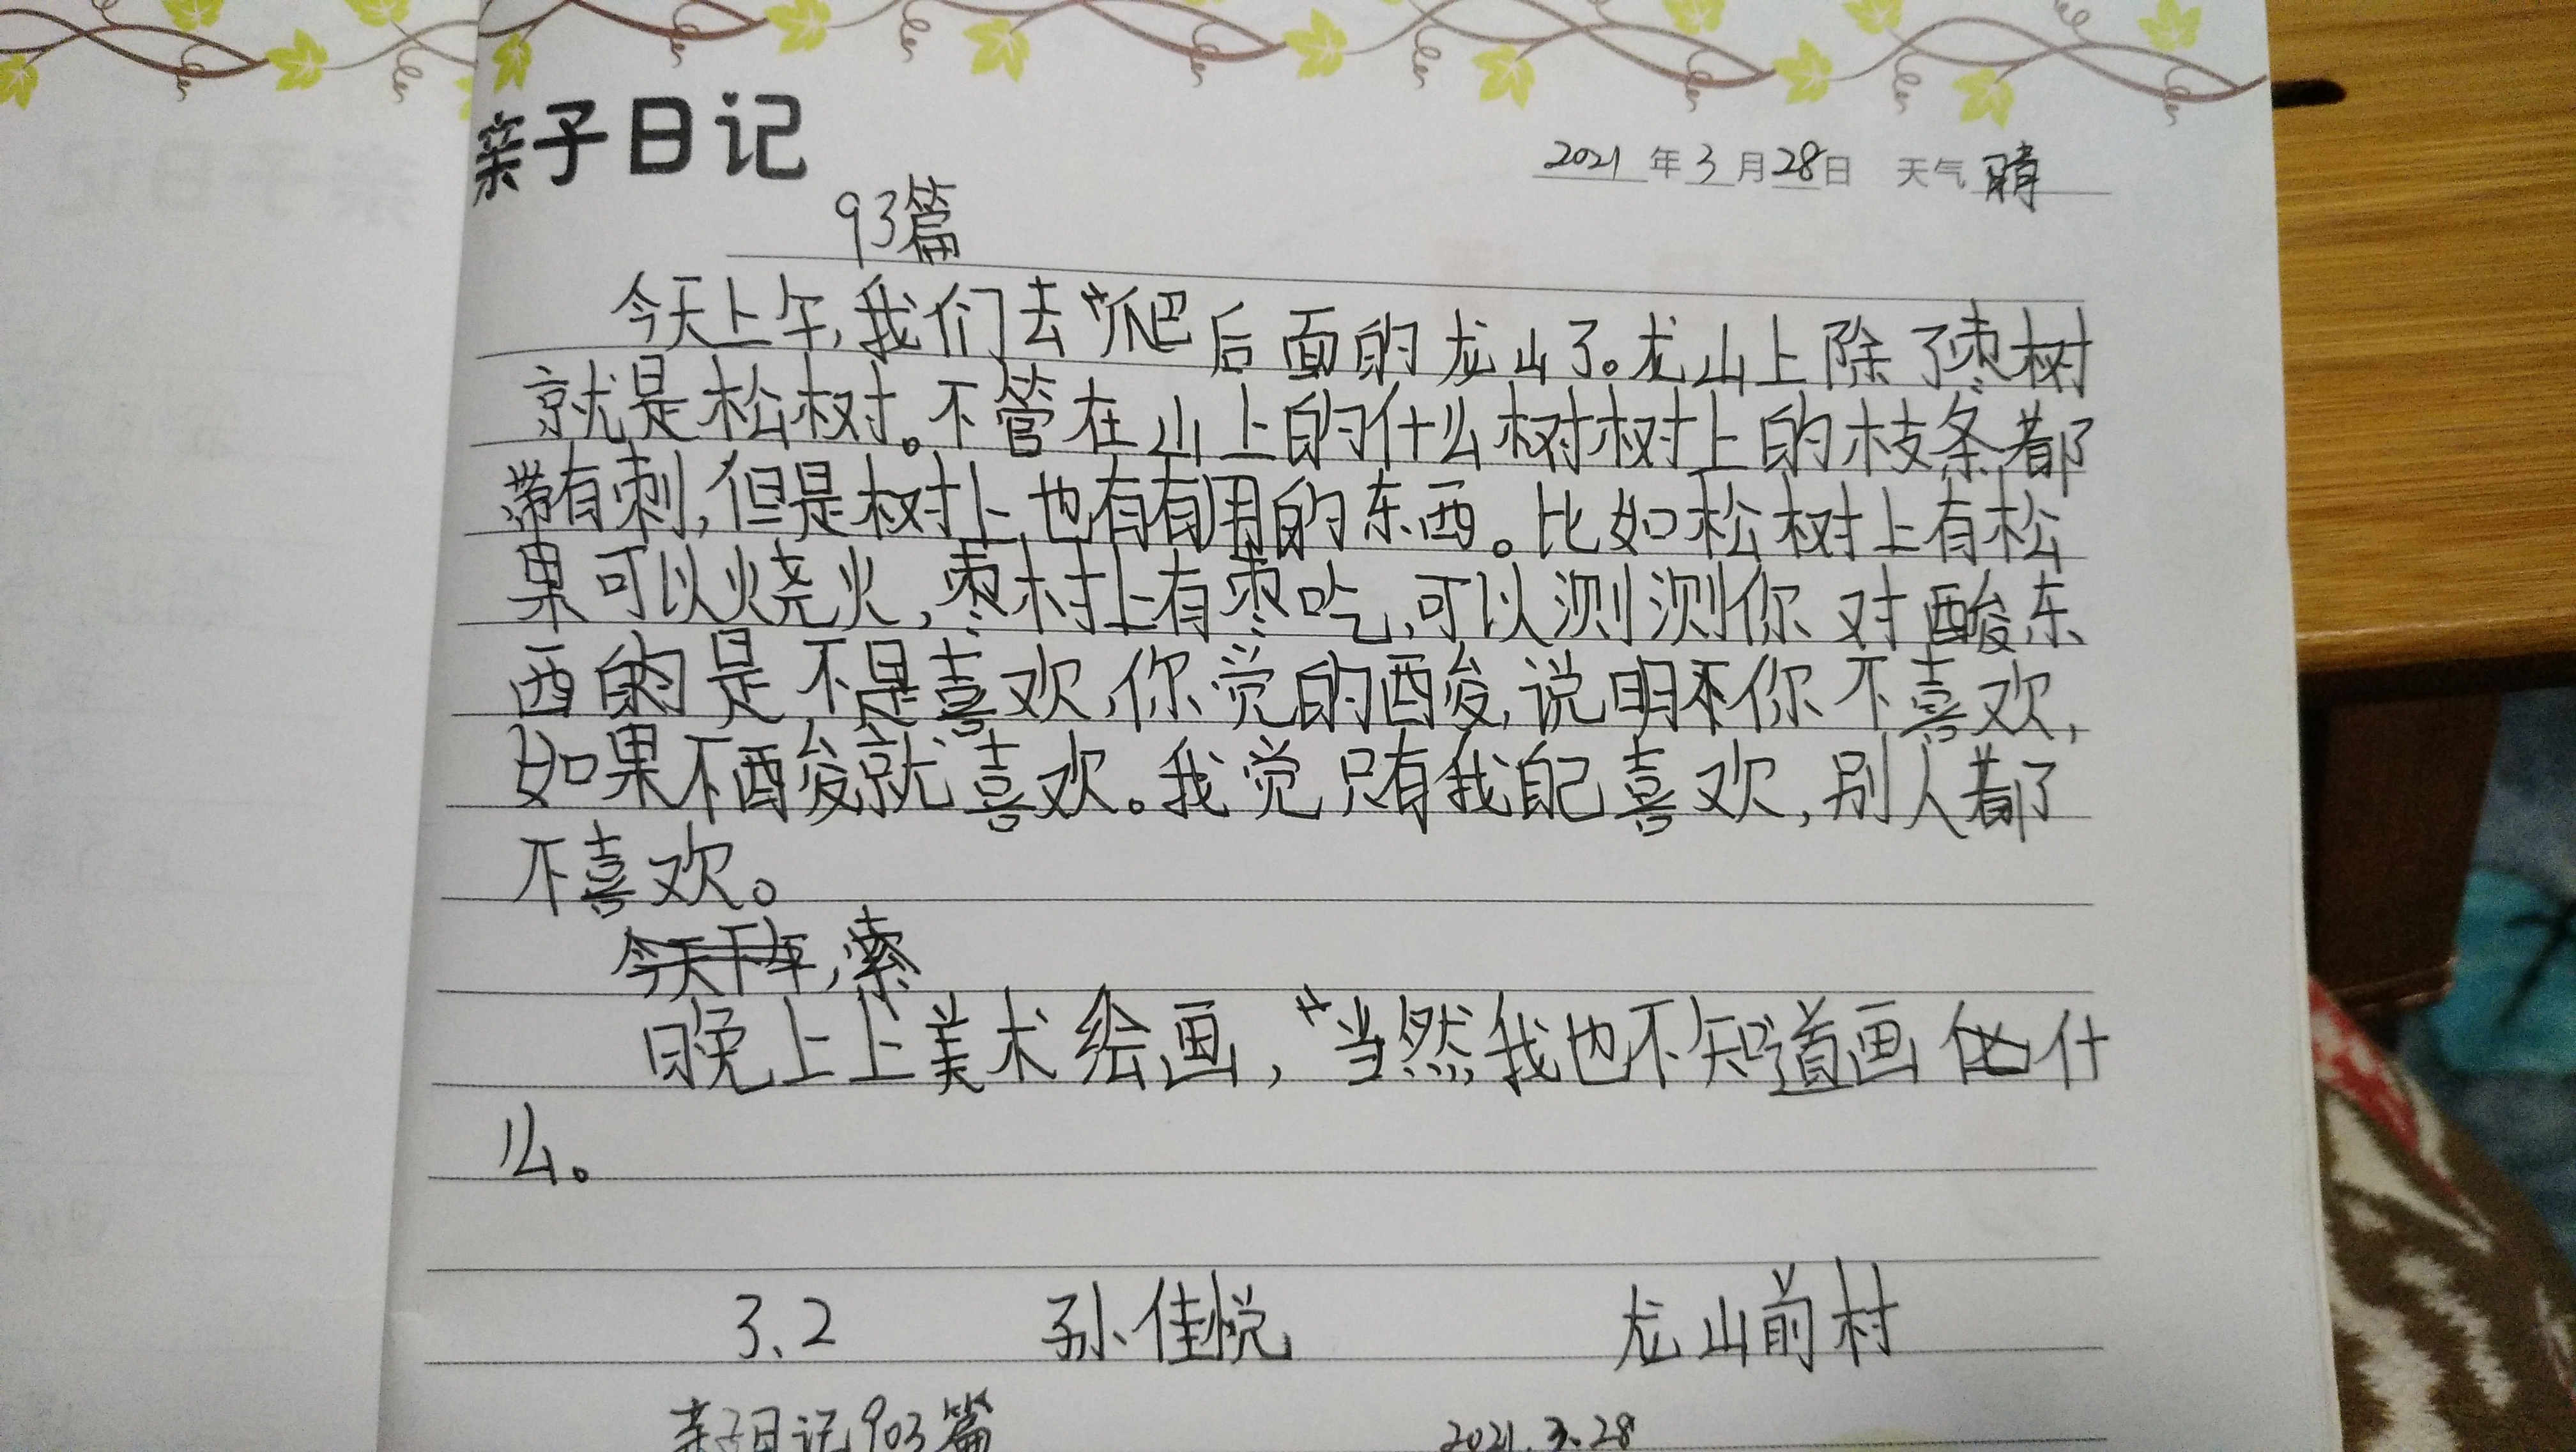 亲子日记
2021年3月28日 天气 晴
93篇
今天上午,我们去爬后面的龙山了。龙山上除了枣树
就是松树。不管在山上的什么树树上的枝条都
带有刺,但是树上也有有用的东西。比如松树上有松
果可以烧火,枣树上有枣吃,可以测测你对酸东
西的是不是喜欢,你觉的酸,说明你不喜欢,
如果不酸就喜欢。我觉只有我自己喜欢,别人都
不喜欢。
今天下午,
晚上上美术绘画,当然我也不知道画什
么。
3.2 孙佳悦 龙山前村
亲子日记903篇 2021.3.28